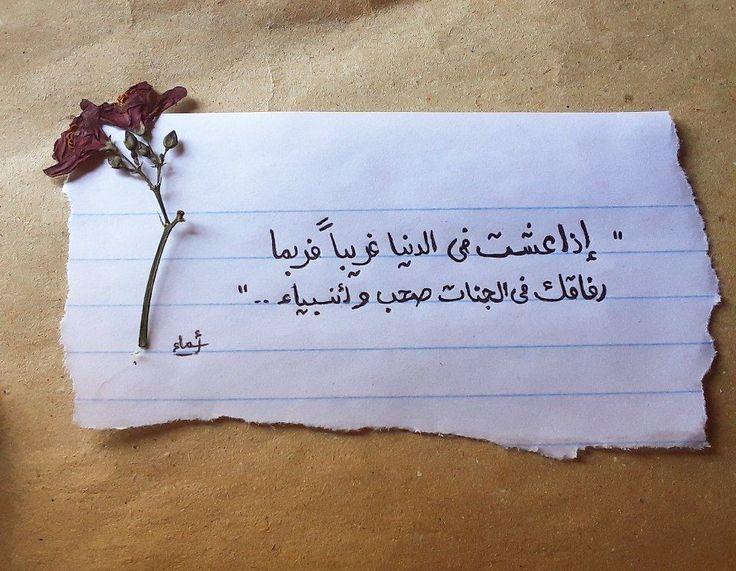 " إذا عشت في الدنيا غريباً فربما
رفاقك في الجنات صحب وأنبياء .. "
أسماء